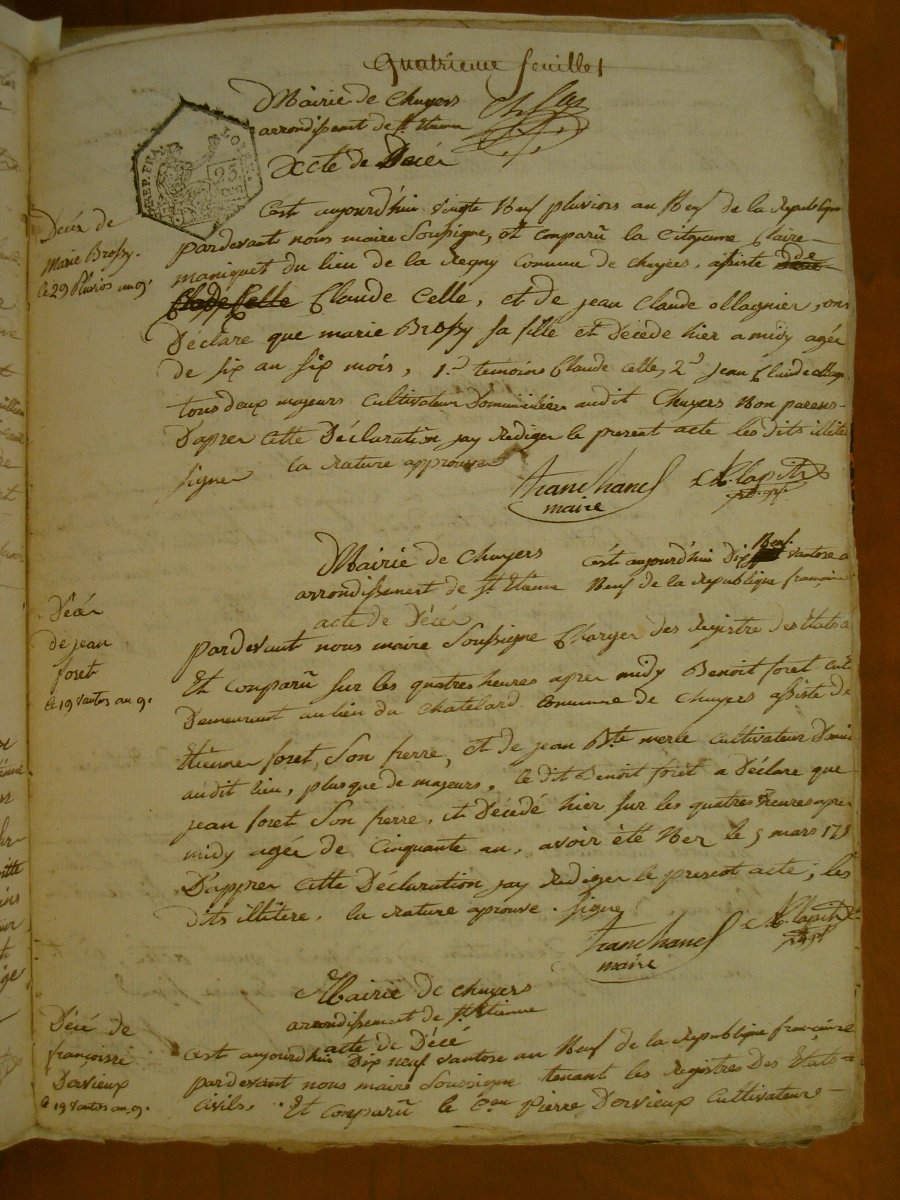 quatrieme feuillet
Mairie de chuyers
arrondissement de St Etienne
Acte de Décér
REP. FRA. LOIRE
25
Décés de
Marie Brossy.
le 29 Pluvios an 9.
C'est aujourd'hui vingte Neuf pluviors an Neuf de la Republique
pardevant nous maire Soussigne, et comparû la Citoyenne Claire
maniquet du lieu de la Regny commune de chuyers, assiste de
Claude Celle Claude Celle, et de jean claude ollagnier, ons
Déclare que marie Brossy sa fille et décede hier a midy agée
de six an six mois, 1.er temoins Claude celle, 2.d Jean Claude ollag
tous deux majeurs cultivateur Domiciliées audit Chuyers Non parens
D'apres cette Déclaration jay Rediger le present acte les dits illite
signer la rature approuvee
tranchand
maire
Mairie de chuyers
arrondissement de St Etienne
acte de Décér
Décér
de jean
foret
le 19 Vantos an 9.
c'est aujourd'huy Dix Neuf vantose a
Neuf de la Republique françoise
pardevant nous maire Soussigne Charger des Registre des Etats
Et comparû sur les quatres heures apres midy Benoit foret cult
Demeurant au lieu du Chatelard commune de chuyers assiste de
Etienne foret, Son frerre, et de jean Bte merle cultivateur Domi
audit lieu, plusque de majeurs, le dit Benoit foret a Déclare que
jean foret Son frerre, et Décédé hier sur les quatres heures apres
midy agée de Cinquante an, avoir èté Nee le 5 mars 175
D'apprer cette Déclaration jay Rediger le present acte; les
dits illitère, la rature aprouve. signe
tranchand
maire
Mairie de chuyers
arrondissement de St Etienne
acte de Décé
Décé de
françoisse
Dervieux
le 19 vantos an 9.
cest aujourdhui Dix neuf vantose an Neuf de la Republique françoise
pardevant nous maire Soussigne tenant les Registres Des Etats
civils. Et comparû le Cen pierre Dervieux cultivateur